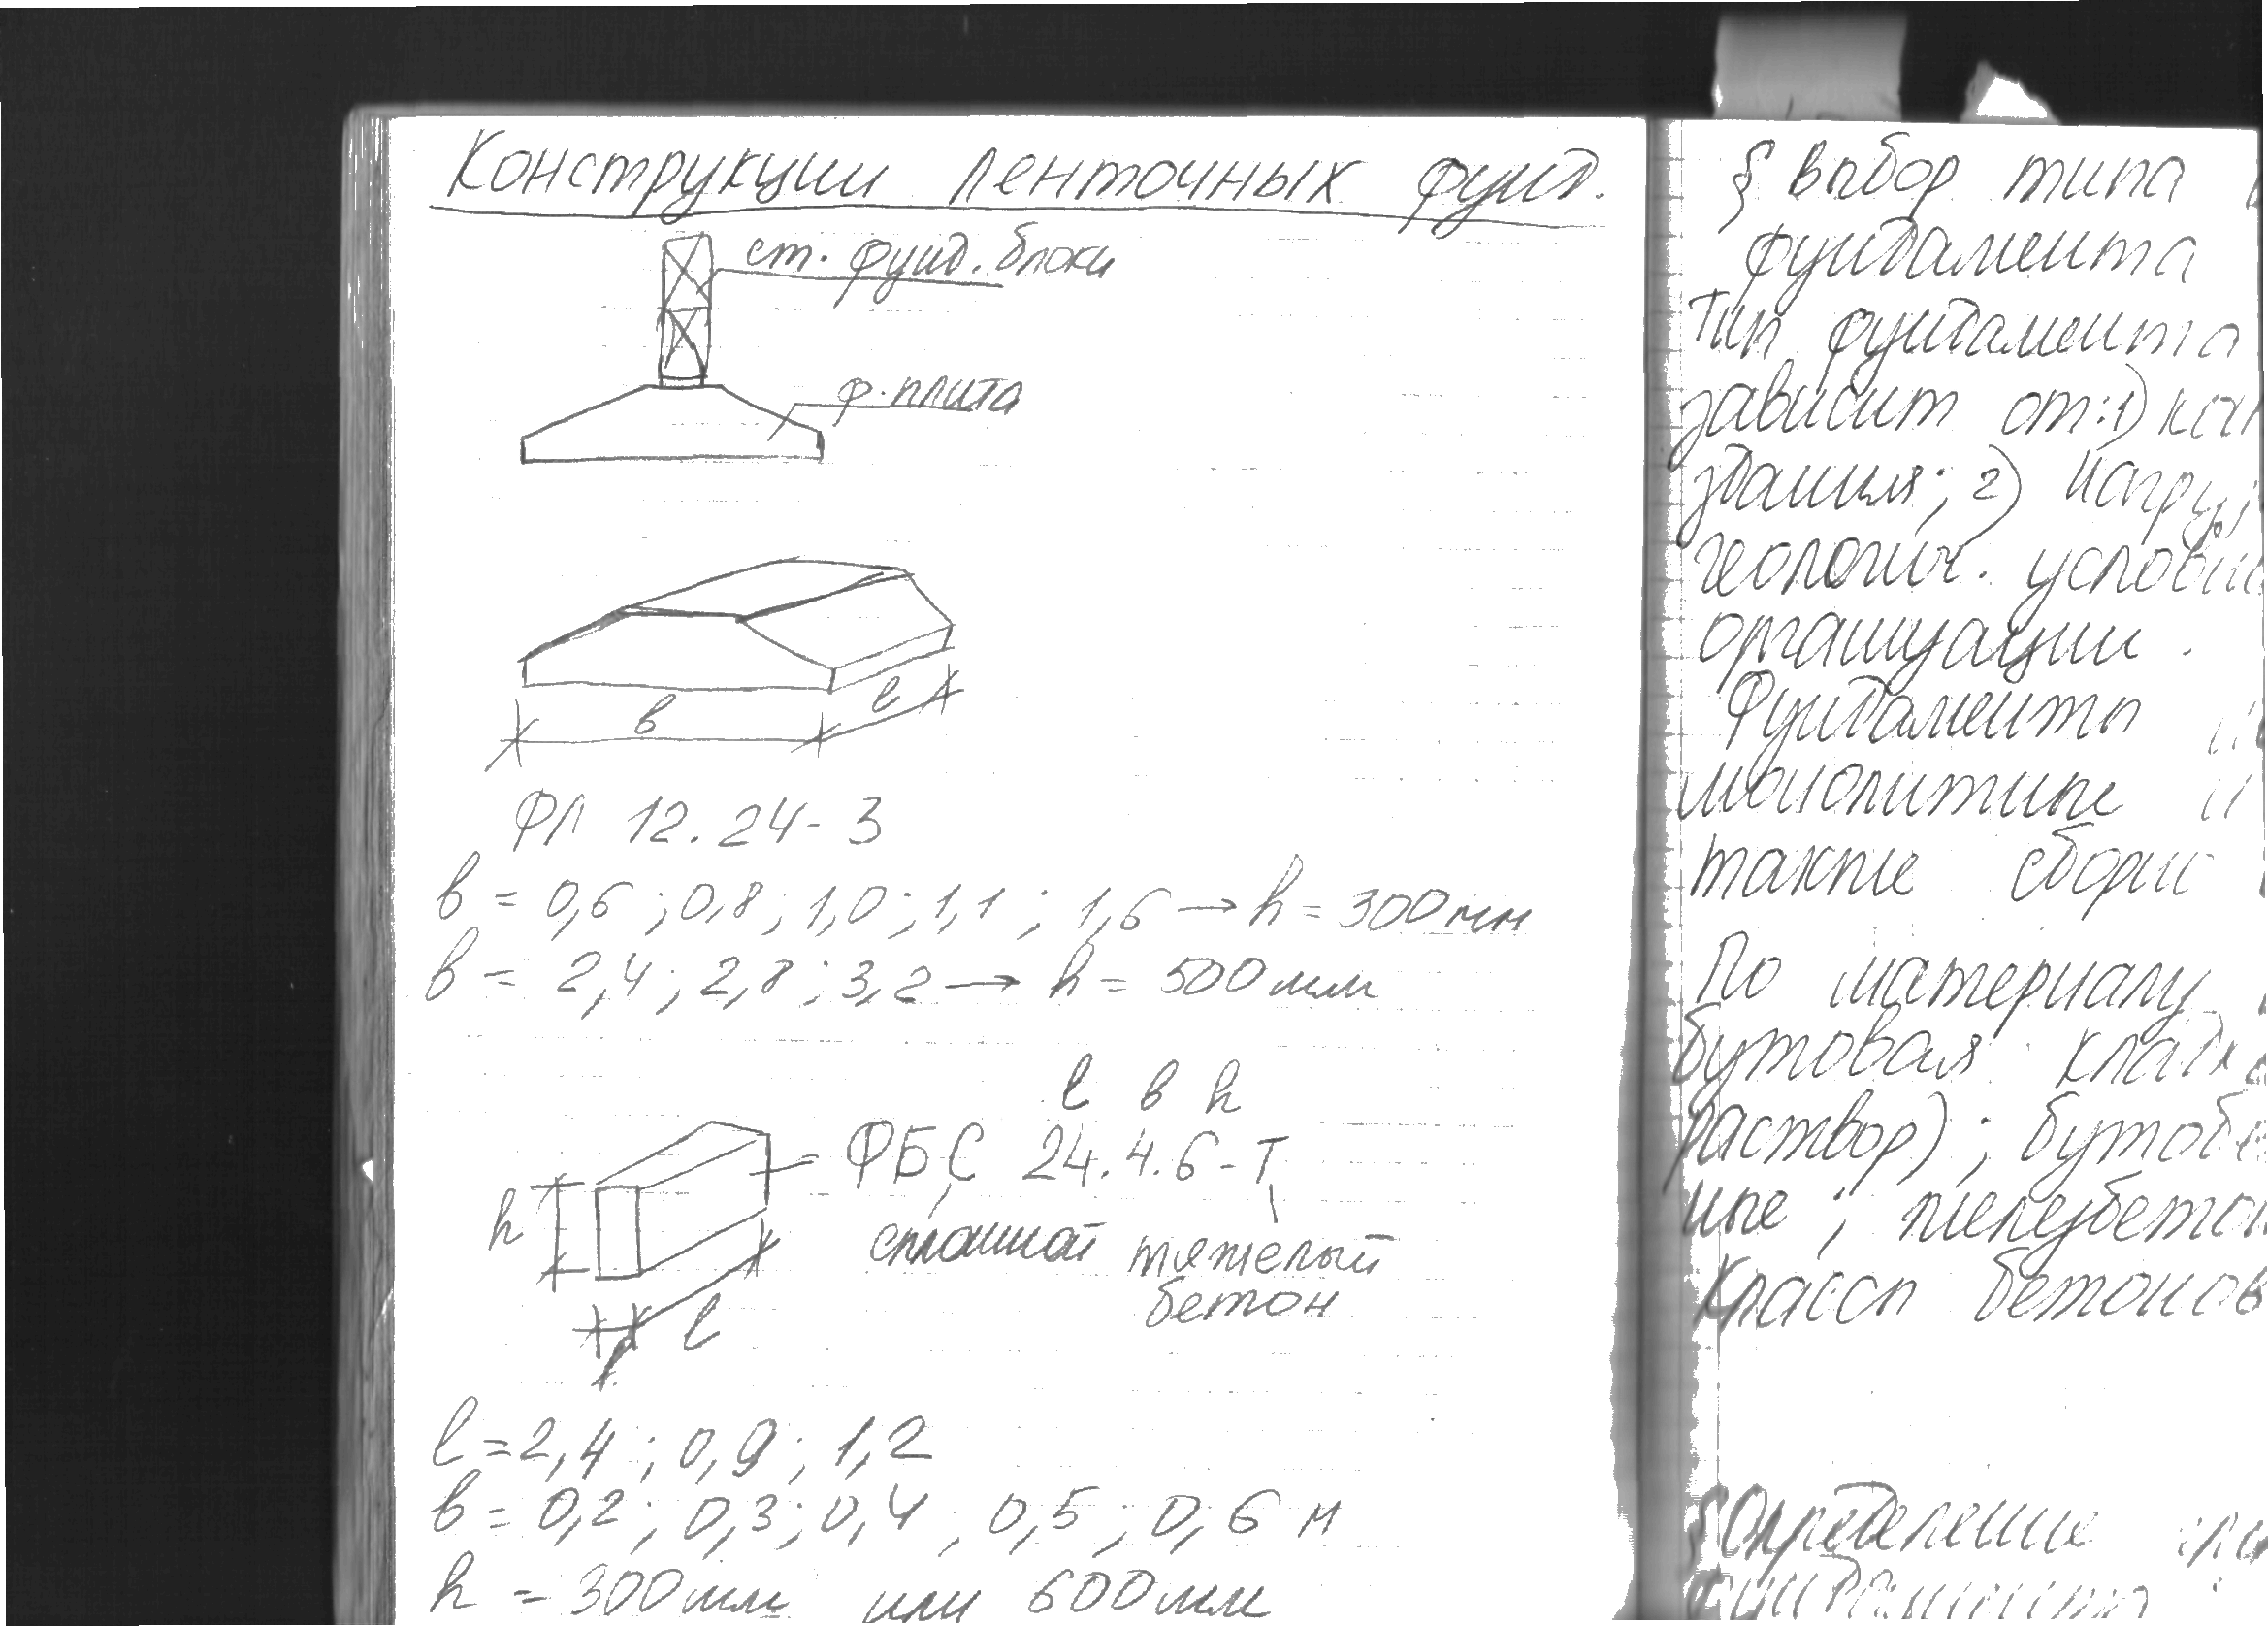 Конструкции ленточных фунд.
ст. фунд. блоки
ф. плита
в
l
ФЛ 12.24-3
в = 0,6 ; 0,8 ; 1,0 ; 1,1 ; 1,6 → h = 300 мм
в = 2,4 ; 2,8 ; 3,2 → h = 500 мм
l в h
ФБС 24.4.6-Т
h
сплошной тяжелый
бетон
l
l = 2,4 ; 0,9 ; 1,2
в = 0,2 ; 0,3 ; 0,4 , 0,5 ; 0,6 м
h = 300 мм или 600 мм
§ Выбор типа
фундамента
Тип фундамента
зависит от: 1)
здания; 2)
геологич.
организации.
Фундаменты
монолитные
также
По материалу
бутовая
раствор);
Классы бетонов
§ Определение